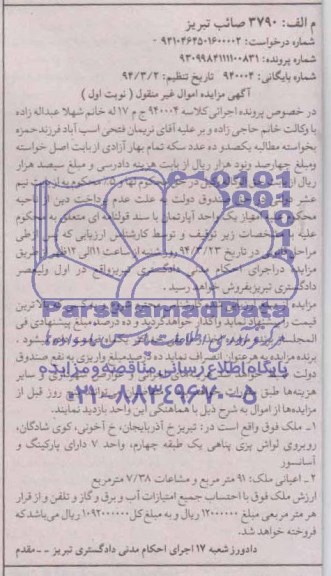 م الف: ۳۷۹۰ صائب تبریز
شماره درخواست: ۹۴۱۰۴۶۲۵۰۱۶۰۰۰۰۲
شماره پرونده: ۹۳۰۹۹۸۴۱۱۱۱۰۰۸۳۱
شماره بایگانی: ۹۴۰۰۰۴ تاریخ تنظیم: ۹۴/۳/۲
آگهی مزایده اموال غیر منقول ( نوبت اول )
در خصوص پرونده اجرائی کلاسه ۹۴۰۰۰۴ ج م ۱۷ له خانم شهلا عبداله زاده
با وکالت خانم حاجی زاده و بر علیه آقای نریمان فتحی اسب آباد فرزند حمزه
بخواسته مطالبه یکصد و ده عدد سکه تمام بهار آزادی از بابت اصل خواسته
و مبلغ چهارصد و نود هزار ریال از بابت هزینه دادرسی و مبلغ سیصد هزار
ریال در حق محکوم لها و محکوم به از بابت نیم
عشر صندوق دولت به علت عدم پرداخت دین از ناحیه
محکوم علیه امتیاز یک واحد آپارتمان با سند قولنامه ای متعلق به محکوم
علیه با مشخصات زیر توقیف و توسط کارشناس ارزیابی که پس از طی
مراحل در تاریخ ۹۴/۳/۲۳ روز شنبه از ساعت ۱۱ الی ۱۲ از طریق
مزایده در اجرای احکام مدنی دادگستری تبریز واقع در اول ولیعصر
دادگستری تبریز بفروش خواهد رسید.
مزایده از مبلغ کارشناسی شروع و به کسی که بالاترین
قیمت را پیشنهاد نماید واگذار خواهد گردید و ده درصد مبلغ پیشنهادی فی
المجلس از برنده مزایده
برنده مزایده به هر عنوان انصراف نماید ده درصد مبلغ واریزی به نفع صندوق
دولت ضبط خواهد
هزینه ها طبق روز قبل از
مزایده ها از اموال به شرح ذیل با هماهنگی این واحد بازدید نمایند.
۱ـ ملک فوق واقع است در: تبریز خ آذربایجان، خ آخونی، کوی شادگان،
روبروی لواش پزی پناهی یک طبقه چهارم، واحد ۷ دارای پارکینگ و
آسانسور
۲ـ اعیانی ملک: ۹۱ متر مربع و مشاعات ۷/۳۸ مترمربع
ارزش ملک فوق با احتساب جمیع امتیازات آب و برق و گاز و تلفن و از قرار
هر متر مربعی مبلغ ۱۲۰۰۰۰۰۰ ریال و به مبلغ کل ۱۰۹۲۰۰۰۰۰۰ ریال می باشد که
فروخته خواهد شد.
دادورز شعبه ۱۷ اجرای احکام مدنی دادگستری تبریز - مقدم
ParsNamadData
پایگاه اطلاع رسانی مناقصه و مزایده
۰۲۱-۸۸۳۴۹۶۷۰-۵